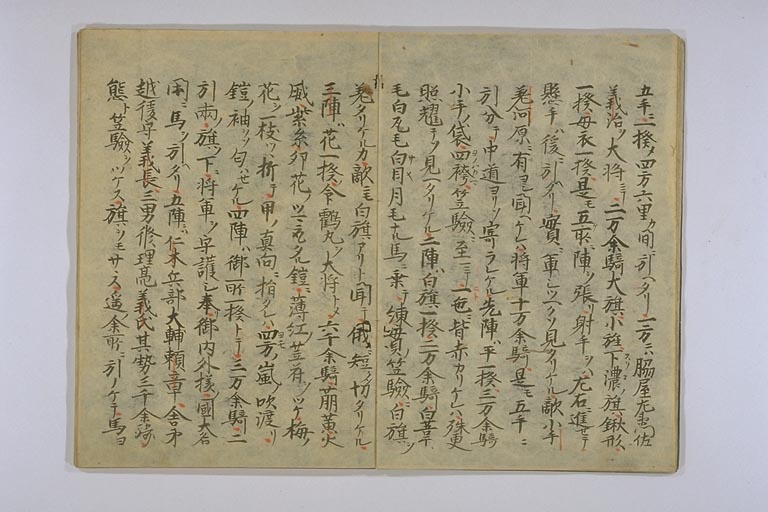 五手ニ一揆ノ四方六里カ間ニ引ヘタリ一方ニハ脇屋左衛門佐
義治ヲ大将ニテ二万余騎大旗小旗下濃ノ旗鍬形
一揆母衣一揆是モ五所ニ陣ヲ張リ射手ヲハ左右ニ進セテ
懸手ハ後ニ引ヘタリ實ニ軍シツヘクソ見タリケル敵小手
差河原ニ有ヨシ聞ヘケレハ将軍十万余騎是モ五手ニ
引分テ中道ヨリソ寄ラレケル先陣ハ平一揆三万余騎
小手ノ袋四袴笠驗ニ至ルマテ一色ニ皆赤カリケレハ殊更
照耀テソ見ヘタリケル二陣ハ白旗一揆二万余騎白葦
毛白瓦毛白目月毛ナル馬ニ乗テ練貫笠驗ニ白旗ヲ
差タリケルカ敵ニモ白旗アリト聞テ俄ニ短クソ切タリケル
三陣ハ花一揆命鶴丸ヲ大将トメ六千余騎萠黄火
威紫糸卯花ノツマ取タル鎧ニ薄紅ノ笠符ヲツケ梅ノ
花ヲ一枝ツヽ折テ甲ノ真向ニ指タレハ四方ノ嵐吹渡リ
鎧ノ袖ヲソ匂ハセケル四陣ハ御所一揆トテ三万余騎二
引両ノ旗ノ下ニ将軍ヲ守護シ奉御内外様ノ國大名
閑ニ馬ヲ引ヘタリ五陣ハ仁木兵部大輔頼章舎弟
越後守義長三男修理亮義氏其勢三千余騎
態ト笠驗ヲツケス旗ヲモサヽス遥余所ニ引ノケテ馬ヨ